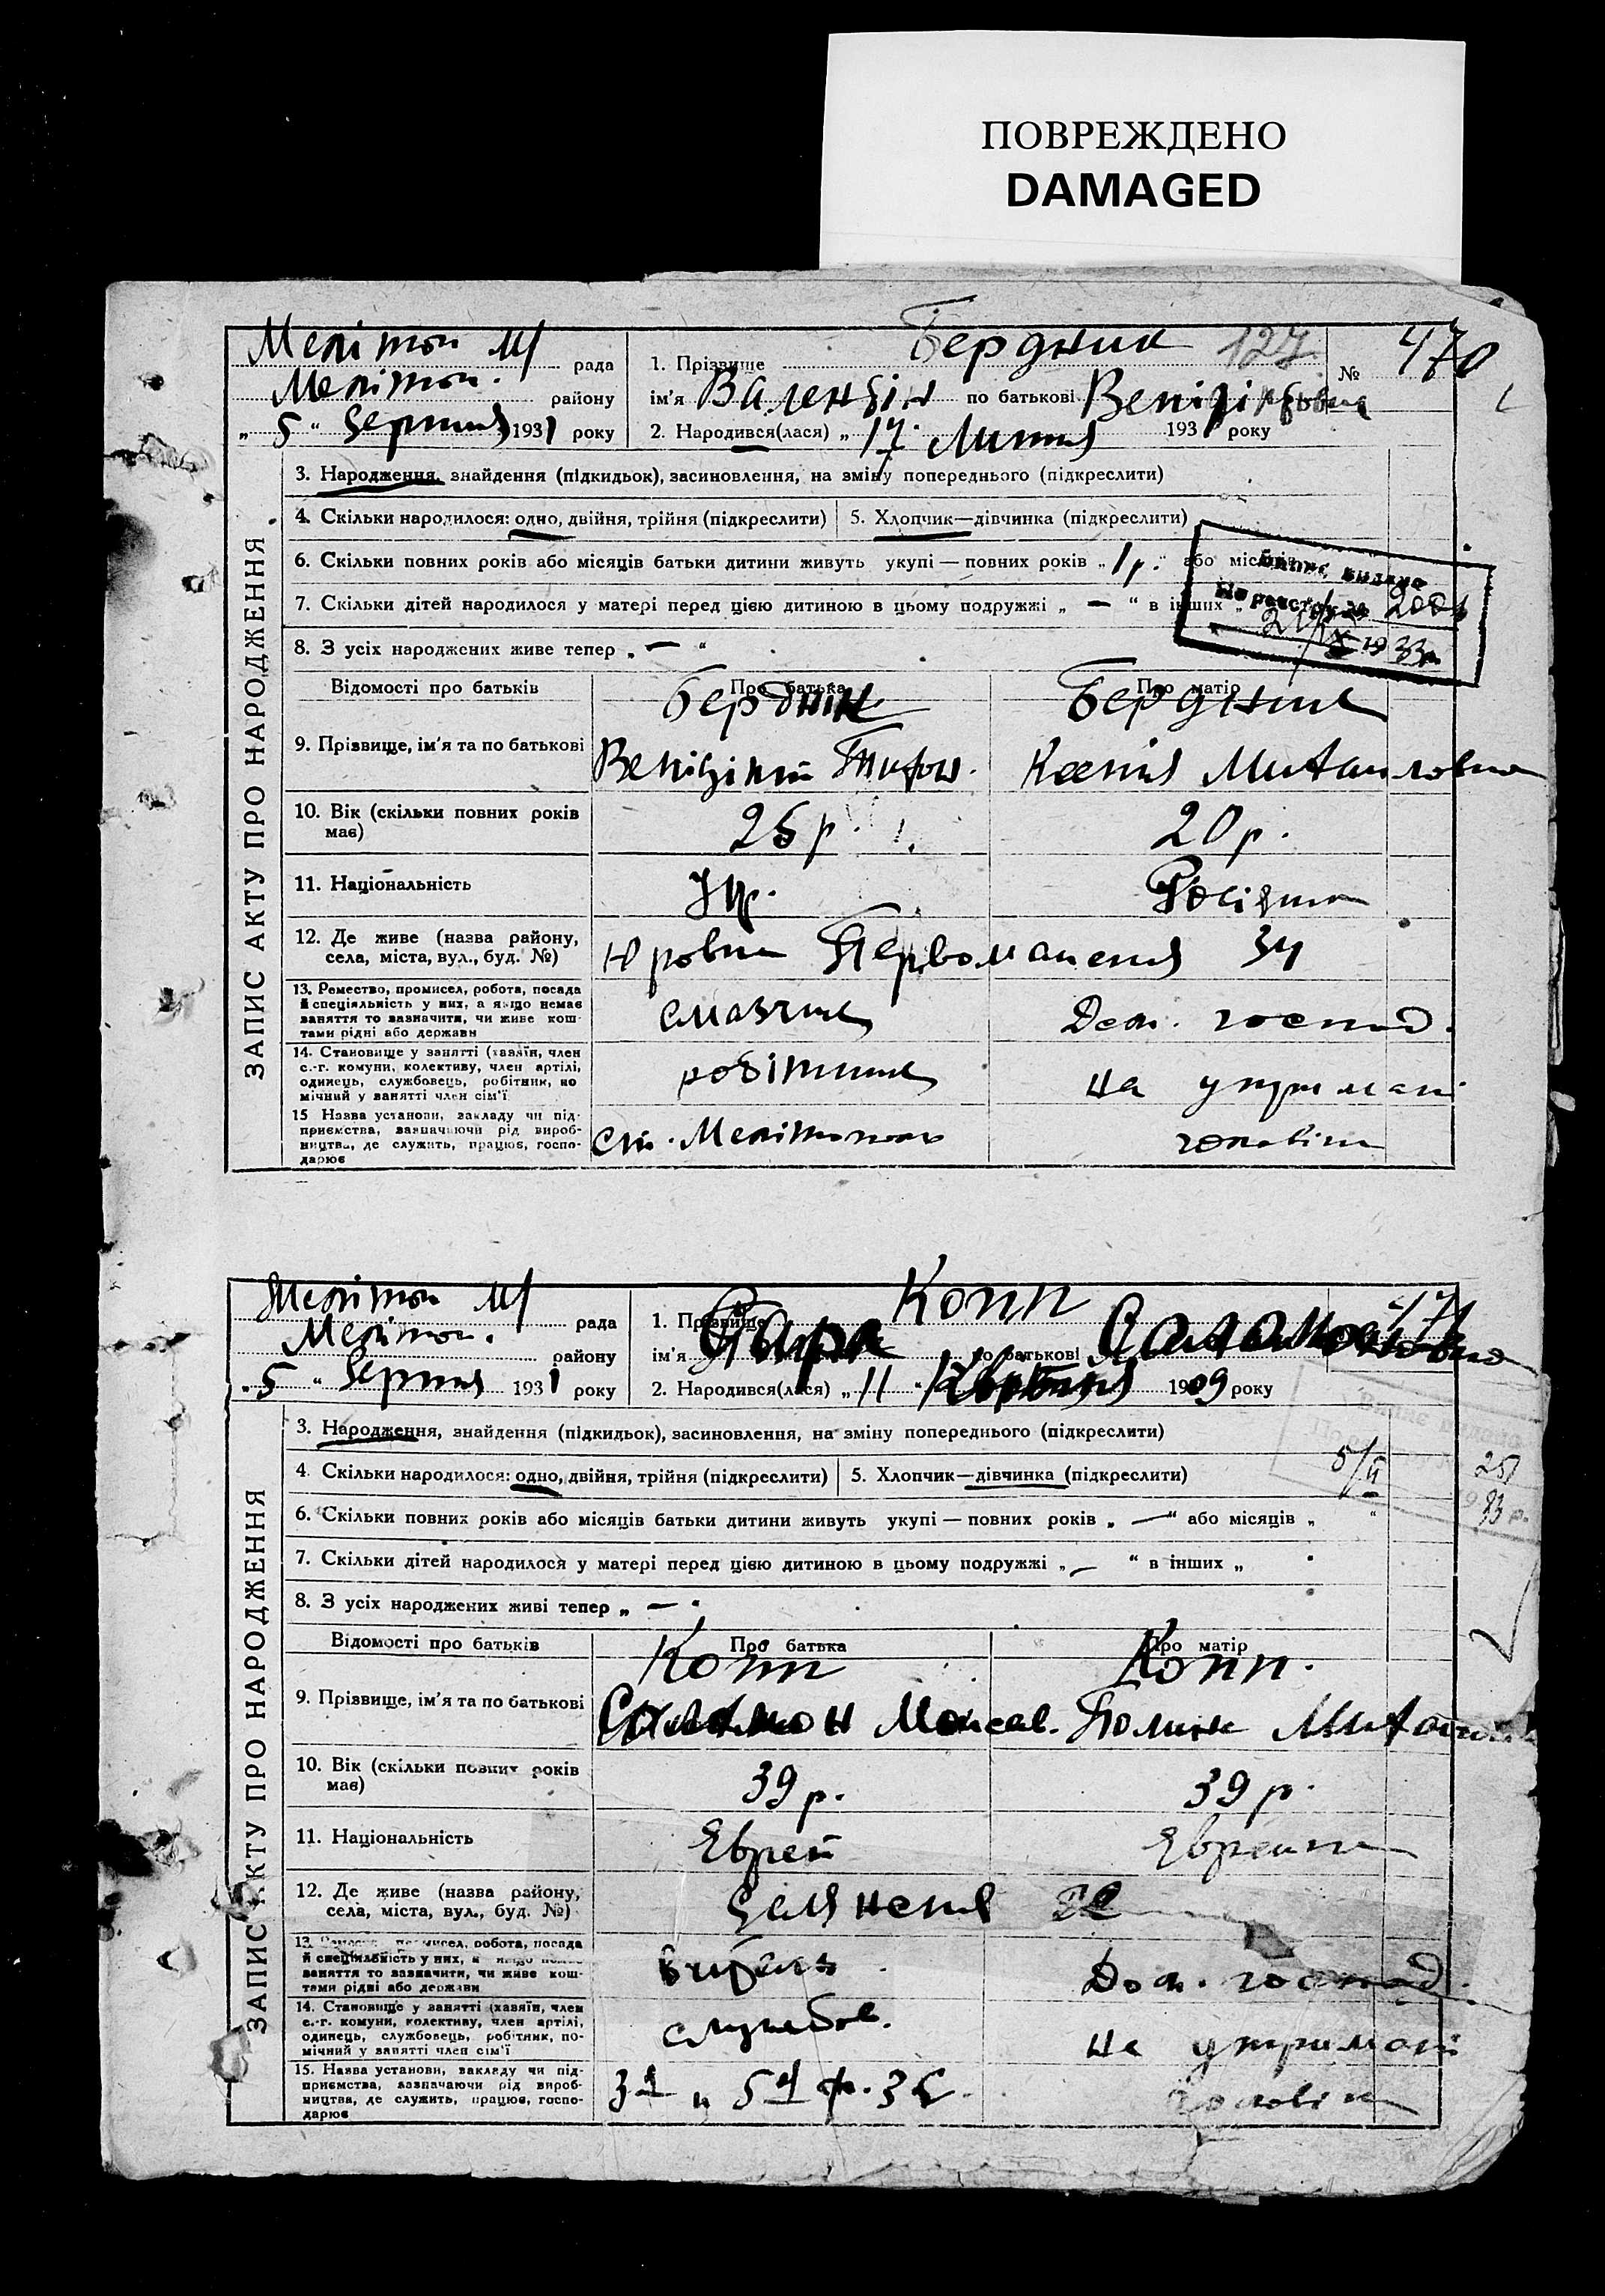 ПОВРЕЖДЕНО
DAMAGED
Меліток М/ рада
Меліток. району
„ 5 “ Серпня 1931 року
1. Прізвище Бердник 127 № 470
ім'я Валентін по батькові
2. Народився(лася) „ 17. Липня 1931 року
ЗАПИС АКТУ ПРО НАРОДЖЕННЯ
3. Народження, знайдення (підкидьок), засиновлення, на зміну попереднього (підкреслити)
4. Скільки народилося: одно, двійня, трійня (підкреслити) 5. Хлопчик—дівчинка (підкреслити)
6. Скільки повних років або місяців батьки дитини живуть укупі — повних років „ 1 р. “ або місяців
7. Скільки дітей народилося у матері перед цією дитиною в цьому подружжі „ — “ в інших „
8. З усіх народжених живе тепер „ — “
Випис видано
По реєстру № 2001
1933 р.
Відомості про батьків Про батька Про матір
Бердник Бердник
9. Прізвище, ім'я та по батькові Ксенія Михайловна
10. Вік (скільки повних років має) 25 р. 20 р.
11. Національність Укр. Росіянка
12. Де живе (назва району, села, міста, вул., буд. №) Первомайська 34
13. Ремество, промисел, робота, посада й спеціяльність у них, а якщо немає заняття то зазначити, чи живе коштами рідні або держави смазчик Дом. господ.
14. Становище у занятті (хазяїн, член с.-г. комуни, колективу, член артілі, одинець, службовець, робітник, помічний у занятті член сім'ї робітник на утримані
15 Назва установи, закладу чи підприємства, зазначаючи рід виробництва, де служить, працює, господарює ст. Мелітополь чоловіка
Меліток М/ рада
Меліток. району
„ 5 “ Серпня 1931 року
1. Прізвище Копп 471
ім'я Сара по батькові Саламоновна
2. Народився(лася) „ 11 “ Квітня 1909 року
ЗАПИС АКТУ ПРО НАРОДЖЕННЯ
3. Народження, знайдення (підкидьок), засиновлення, на зміну попереднього (підкреслити)
4. Скільки народилося: одно, двійня, трійня (підкреслити) 5. Хлопчик—дівчинка (підкреслити)
6. Скільки повних років або місяців батьки дитини живуть укупі — повних років „ — “ або місяців „ “
7. Скільки дітей народилося у матері перед цією дитиною в цьому подружжі „ — “ в інших „
8. З усіх народжених живі тепер „ — “
Відомості про батьків Про батька Про матір
Копп Копп.
9. Прізвище, ім'я та по батькові Саламон Моисев. Полина
10. Вік (скільки повних років має) 39 р. 39 р.
11. Національність Еврей Еврейка
12. Де живе (назва району, села, міста, вул., буд. №)
13. Ремество, промисел, робота, посада й спеціяльність у них, а якщо немає заняття то зазначити, чи живе коштами рідні або держави вчитель Дом. господ.
14. Становище у занятті (хазяїн, член с.-г. комуни, колективу, член артілі, одинець, службовець, робітник, помічний у занятті член сім'ї службов. на утримані
15. Назва установи, закладу чи підприємства, зазначаючи рід виробництва, де служить, працює, господарює чоловіка